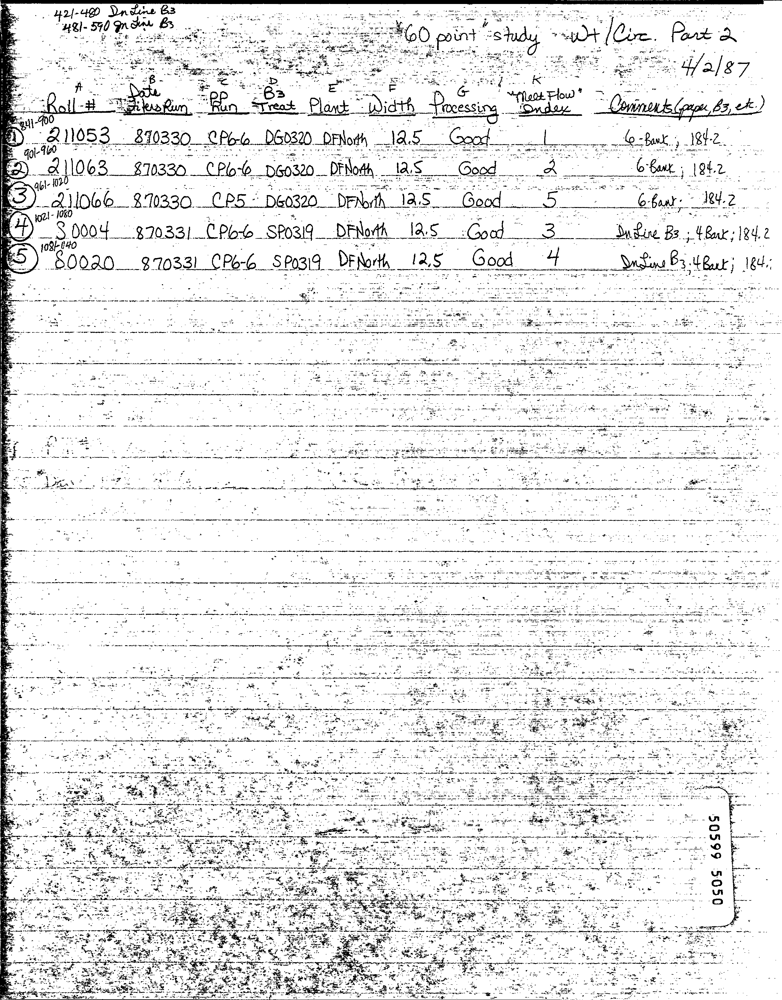 421-480 In Line B3
481-540 In Line B3
"60 point" study - Wt/Circ. Part 2
4/2/87
A B C D E F G K
Roll # Date Filters Run PP Run B3 Treat Plant Width Processing "Melt Flow" Index Comments (paper, B3, etc.)
841-900
① 211053 870330 CP6-6 DG0320 DFNorth 12.5 Good 1 6-Bank; 184.2
901-960
② 211063 870330 CP6-6 DG0320 DFNorth 12.5 Good 2 6-Bank; 184.2
961-1020
③ 211066 870330 CP5 DG0320 DFNorth 12.5 Good 5 6-Bank; 184.2
1021-1080
④ S0004 870331 CP6-6 SP0319 DFNorth 12.5 Good 3 In Line B3; 4 Bank; 184.2
⑤ 80020 870331 CP6-6 SP0319 DFNorth 12.5 Good 4 In Line B3; 4 Bank; 184.
50599 5050